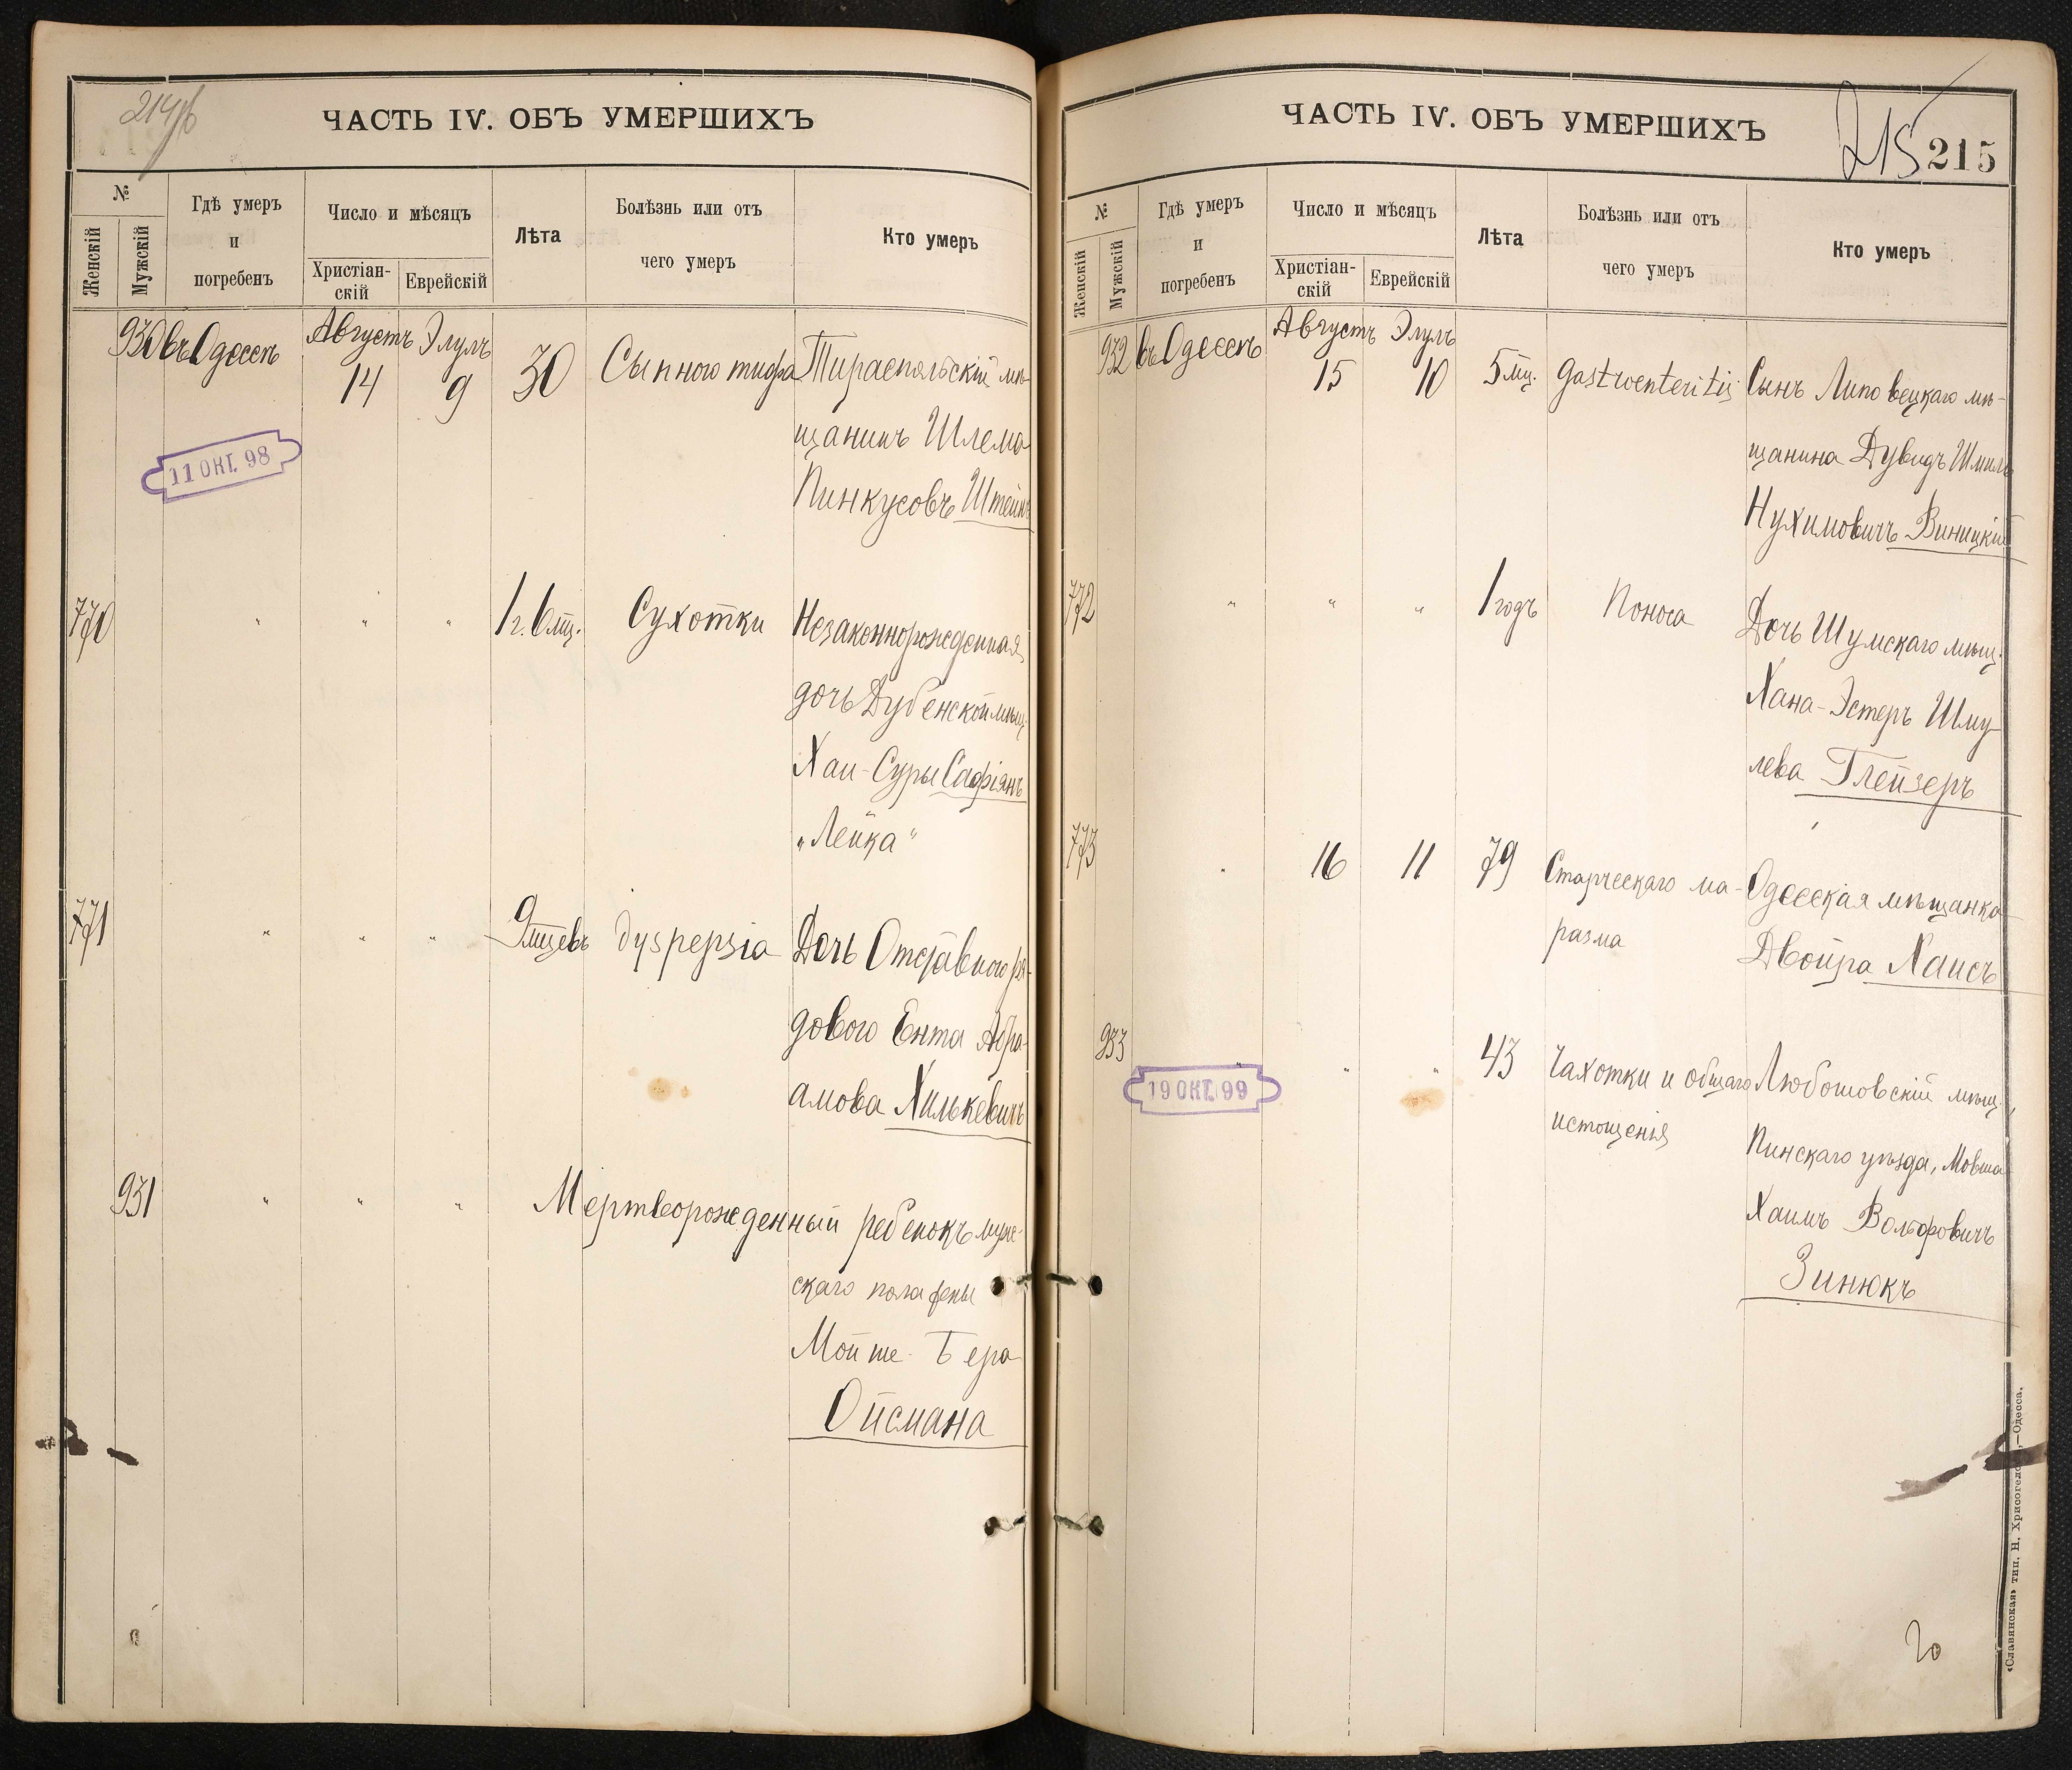 214об
ЧАСТЬ IV. ОБЪ УМЕРШИХЪ
№
Женскій
Мужскій
Гдѣ умеръ
и
погребенъ
Число и мѣсяцъ
Христіан-
скій
Еврейскій
Лѣта
Болѣзнь или отъ
чего умеръ
Кто умеръ
930 въ Одессѣ Августъ Элулъ
14 9 30 Сыпного тифа Тираспольскій мѣ-
щанинъ Шлема
Пинкусовъ Штейнъ
11 ОКТ. 98
770 " " " 1 г. 6 мц. Сухотки Незаконнорожденная
дочь Дубенской мѣщ.
Хаи-Суры Сафіянъ
"Лейка"
771 " " " 9 мцевъ dyspepsia Дочь Отставного ря-
дового Ента Абра-
амова Хилькевичъ
931 " " " Мертворожденный ребенокъ муже-
скаго пола
Мойше-Бера
Ойсмана
ЧАСТЬ IV. ОБЪ УМЕРШИХЪ
215
215
№
Женскій
Мужскій
Гдѣ умеръ
и
погребенъ
Число и мѣсяцъ
Христіан-
скій
Еврейскій
Лѣта
Болѣзнь или отъ
чего умеръ
Кто умеръ
932 въ Одессѣ Августъ Элулъ
15 10 5 мц. Gastroenteritis Сынъ Липовецкаго мѣ-
щанина Дувидъ Шмиль
Нухимовичъ Виницкій
772 " " " 1 годъ Поноса Дочь Шумскаго мѣщ.
Хана-Эстеръ Шму-
лева Глейзеръ
773 " 16 11 79 Старческаго ма- Одесская мѣщанка
разма Двойра Хаисъ
933 " " " 43 Чахотки и общаго Любошовскій мѣщ.
истощенія Пинскаго уѣзда, Мовша
Хаимъ Вольфовичъ
Зинюкъ
19 ОКТ. 99
«Славянская» тип. Н. Хрисогелосъ,—Одесса.